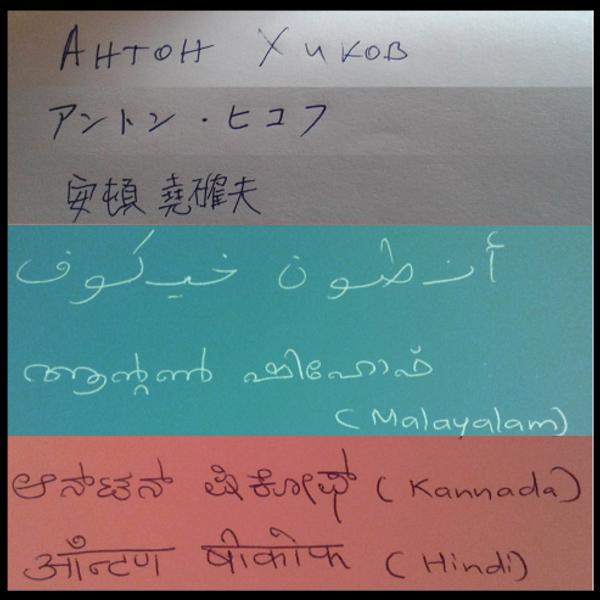 Антон Хиков
アントン・ヒコフ
安頓 堯確夫
أنطون خيكوف
ആന്റൺ ഷിഹോഫ്
(Malayalam)
ಆನ್ಟನ್ ಷಿಕೋಫ್ (Kannada)
ऑन्टण षीकोफ (Hindi)